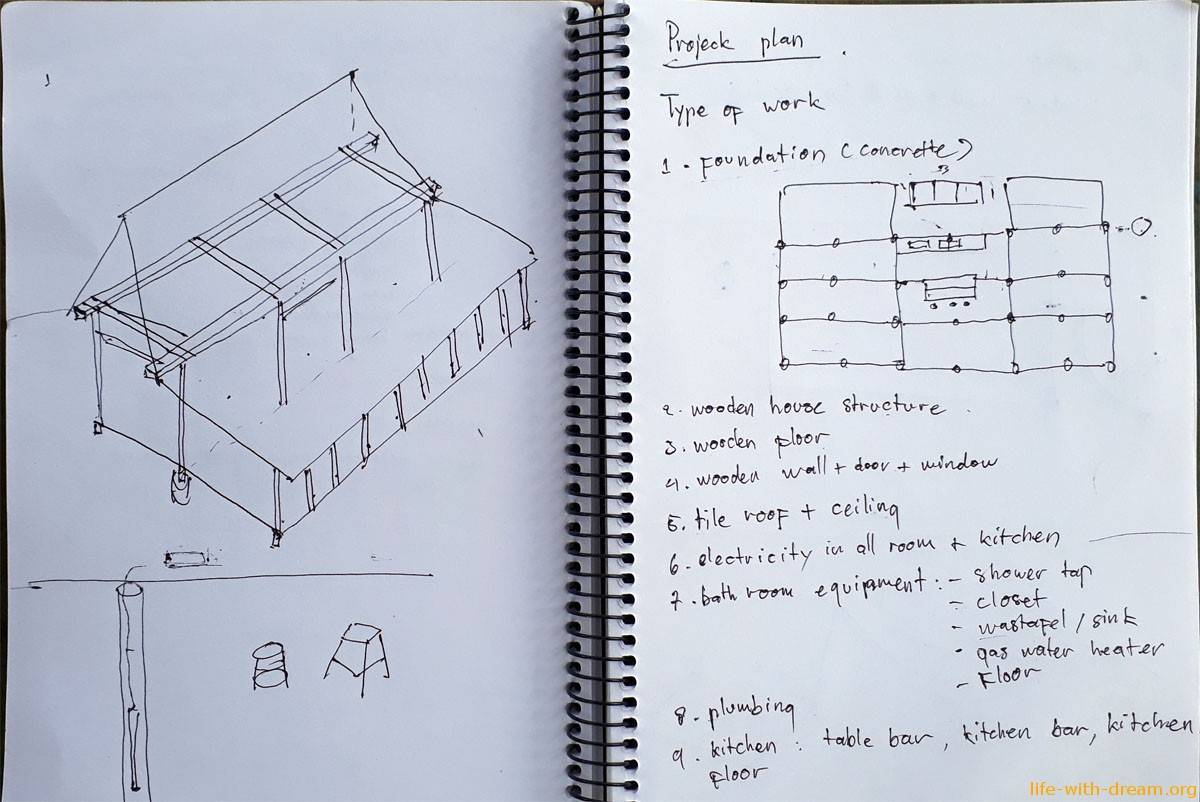 Projeck plan
Type of work
1. Foundation (concrette)
2. wooden house structure.
3. wooden floor
4. wooden wall + door + window
5. tile roof + ceiling
6. electricity in all room + kitchen
7. bath room equipment : - shower tap
- closet
- wastafel / sink
- gas water heater
- Floor
8. plumbing
9. kitchen : table bar, kitchen bar, kitchen
floor
life-with-dream.org